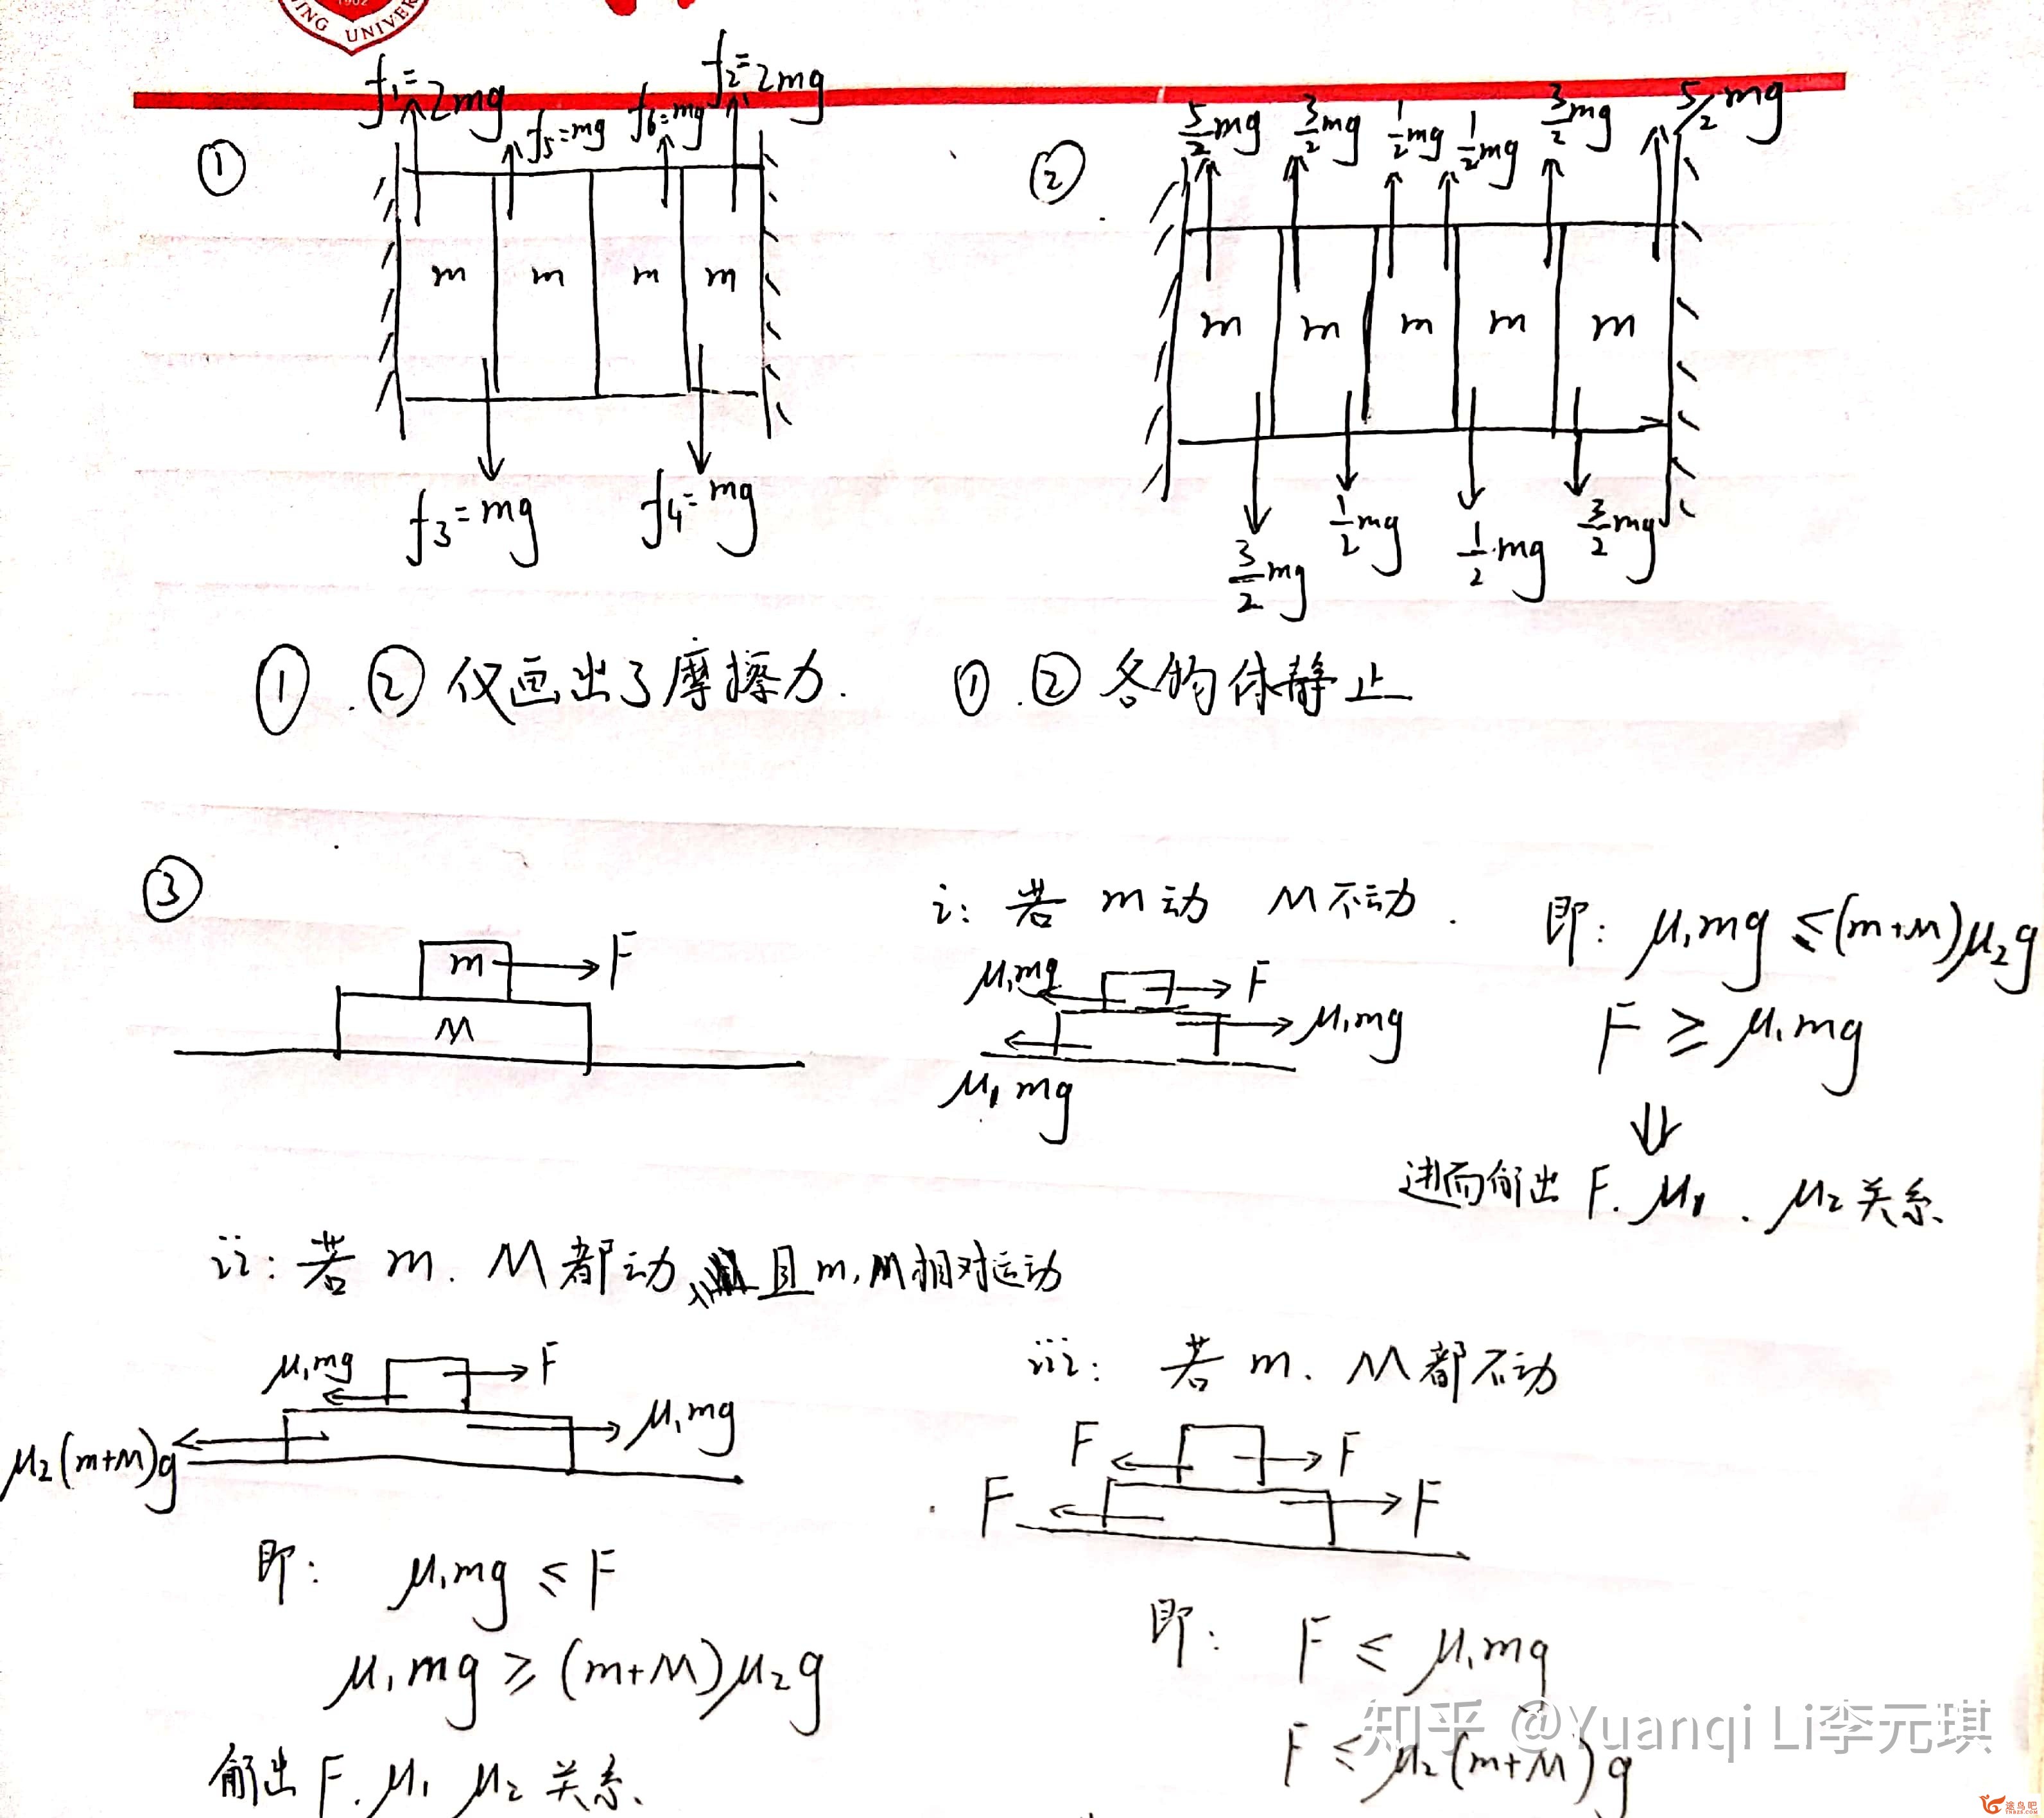 1902
NING UNIVER
①
f₁=2mg
f₅=mg
f₆=mg
f₂=2mg
m m m m
f₃=mg
f₄=mg
②
5/2 mg 3/2 mg 1/2 mg 1/2 mg 3/2 mg 5/2 mg
m m m m m
3/2 mg 1/2 mg 1/2 mg 3/2 mg
①.②仅画出了摩擦力. ①.②各物体静止
③
m F
M
i: 若 m动 M不动.
μ₁mg F
μ₁mg
μ₁mg
即: μ₁mg ≤(m+M)μ₂g
F ≥ μ₁mg
⇓
进而解出 F. μ₁. μ₂关系.
ii: 若 m. M都动 且m,M相对运动
μ₁mg F
μ₁mg
μ₂(m+M)g
即: μ₁mg ≤ F
μ₁mg ≥ (m+M)μ₂g
解出 F. μ₁ μ₂ 关系.
iii: 若 m. M都不动
F F
F F
即: F ≤ μ₁mg
F ≤ μ₂(m+M)g
知乎 @Yuanqi Li李元琪
途鸟吧